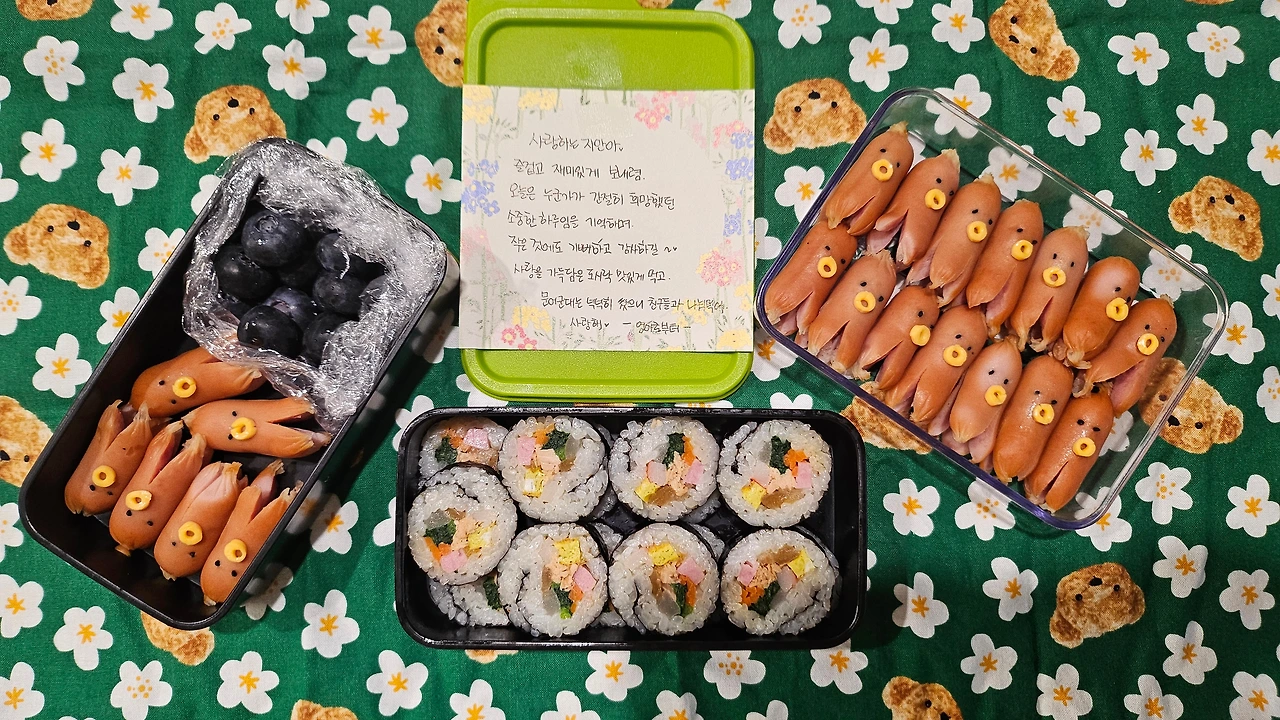 사랑하는 지안아~
즐겁고 재미있게 보내렴.
오늘은 누군가가 간절히 희망했던
소중한 하루임을 기억하며.
작은 것에도 기뻐하고 감사하길 ~♡
사랑을 가득담은 도시락 맛있게 먹고
문어군대는 넉넉히 쌌으니 친구들과 나눠먹어.
사랑해♥ - 엄마로부터 -